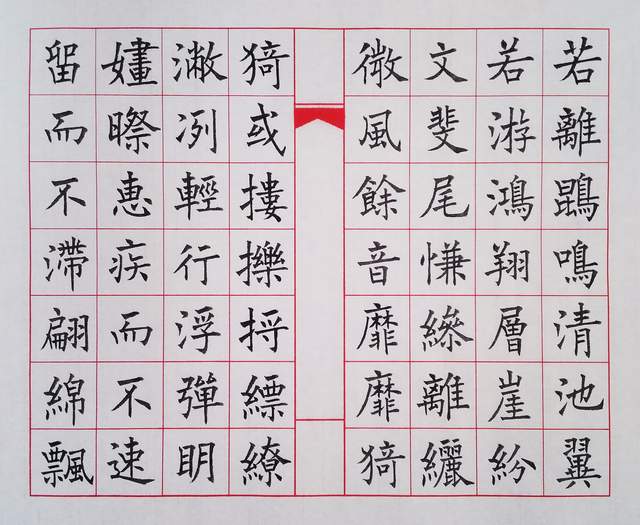 若離鵾鳴清池翼
若游鴻翔層崖紛
文斐尾慊縿離纚
微風餘音靡靡猗
猗或摟擽捋縹繚
潎冽輕行浮彈眀
嫿暩惠疾而不速
留而不滯翩綿飄